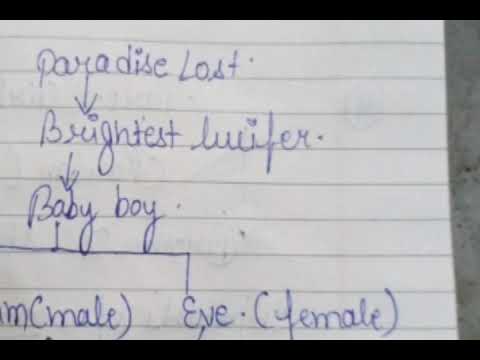 Paradise Lost.
Brightest lucifer.
Baby boy.
(male) Eve. (female)